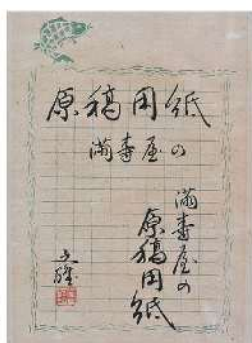 原稿用紙
満寿屋の
満寿屋の
原稿用紙